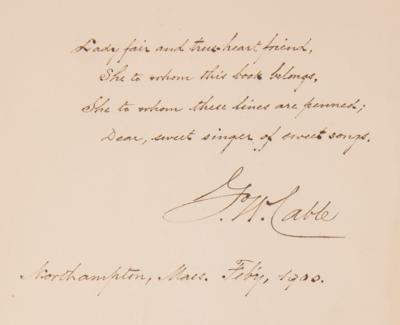 Lady fair and true-heart friend,
She to whom this book belongs,
She to whom these lines are penned;
Dear, sweet singer of sweet songs.
G. W. Cable
Northampton, Mass. Feb'y, 1900.